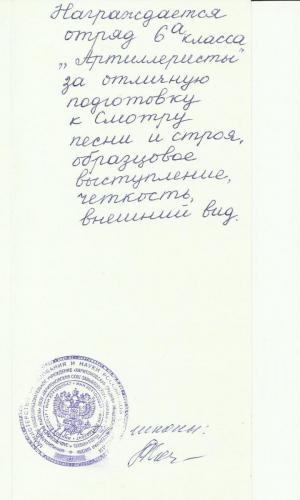 Награждается
отряд 6а класса
„Артиллеристы"
за отличную
подготовку
к Смотру
песни и строя,
образцовое
выступление,
четкость,
внешний вид.
школы: